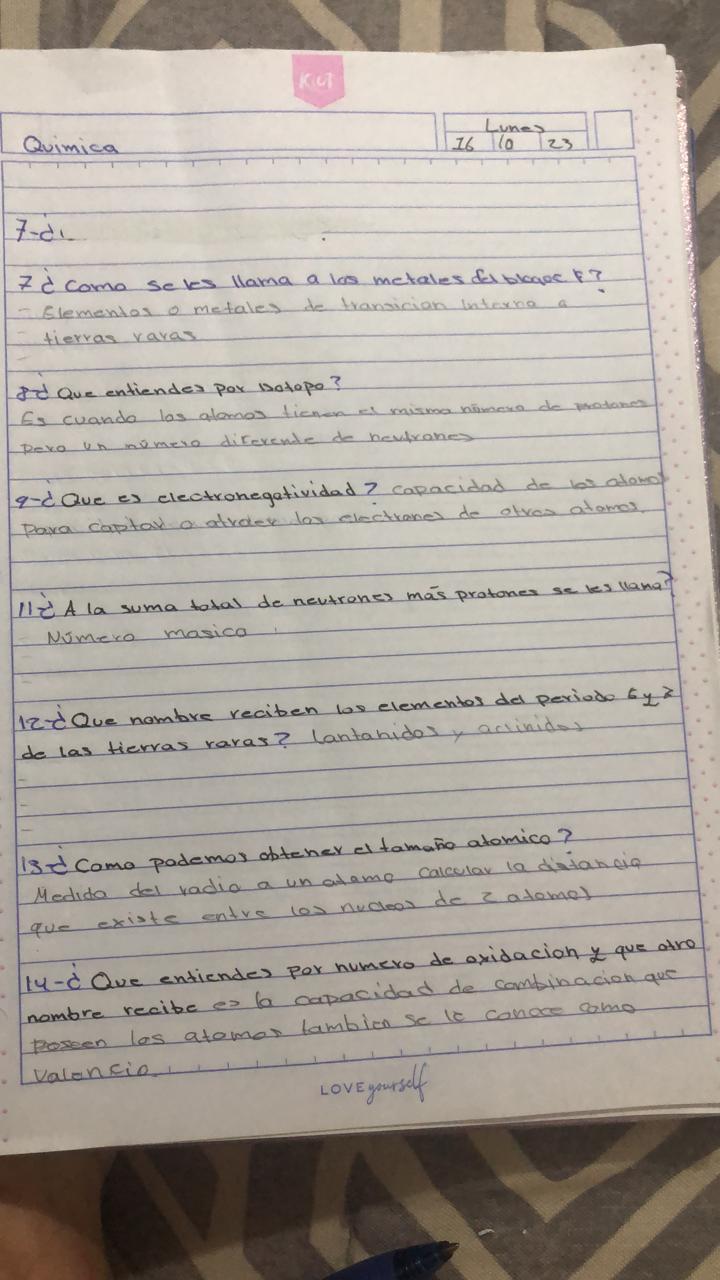 KUT
Quimica
Lunes
16 10 23
7-¿
7 ¿Como se les llama a los metales del bloque F?
- Elementos o metales de transicion interna o
tierras raras
8-¿Que entiendes por isotopo?
Es cuando los atomos tienen el mismo número de protones
pero un número diferente de neutrones
9-¿Que es electronegatividad? capacidad de los atomos
para captar o atraer los electrones de otros atomos.
11¿A la suma total de neutrones más protones se les llama?
Número masico
12-¿Que nombre reciben los elementos del periodo 6 y 7
de las tierras raras? lantanidos y actinidos
13-¿Como podemos obtener el tamaño atomico?
Medida del radio a un atomo calcular la distancia
que existe entre los nucleos de 2 atomos
14-¿Que entiendes por numero de oxidacion y que otro
nombre recibe es la capacidad de combinacion que
poseen los atomos tambien se le conoce como
Valencia
LOVE yourself